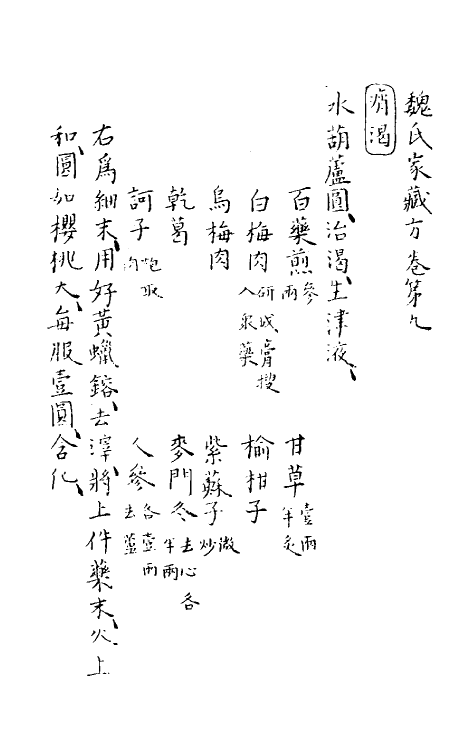 魏氏家藏方卷第九
痟渴
水葫蘆圓、治渴、生津液、
百藥煎參兩 甘草壹兩半炙
白梅肉研成膏搜入衆藥 榆柑子
烏梅肉 紫蘇子微炒
乾葛 麥門冬去心各半兩
訶子炮取肉 人參各壹兩去蘆
右爲細末、用好黃蠟鎔、去滓、將上件藥末、火上
和、圓如櫻桃大、每服壹圓、含化、